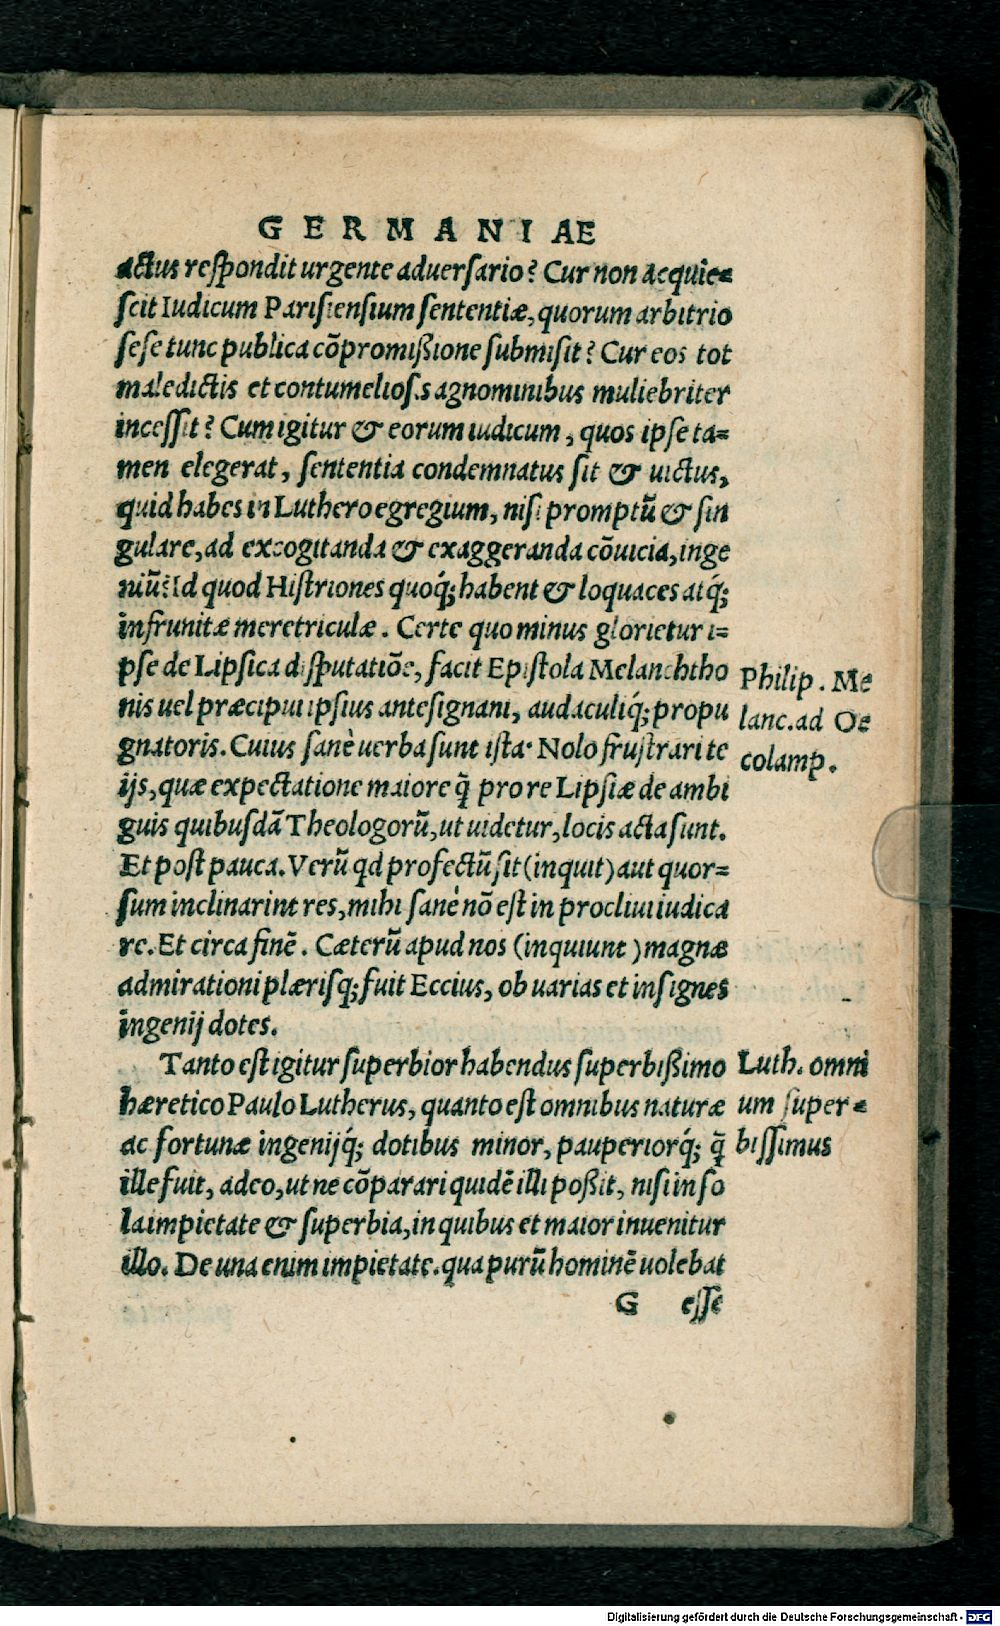 GERMANIAE
actus respondit urgente aduersario? Cur non acquie=
scit Iudicum Parisiensium sententiæ, quorum arbitrio
sese tunc publica cõpromißione submisit? Cur eos tot
maledictis et contumeliosis agnominibus muliebriter
incessit? Cum igitur & eorum iudicum, quos ipse ta=
men elegerat, sententia condemnatus sit & uictus,
quid habes in Luthero egregium, nisi promptũ & sin
gulare, ad excogitanda & exaggeranda cõuicia, inge
niũ? Id quod Histriones quoq́; habent & loquaces atq́;
infrunitæ meretriculæ. Certe quo minus glorietur i=
pse de Lipsica disputatiõe, facit Epistola Melanchtho
nis uel præcipui ipsius antesignani, audaculiq́; propu
gnatoris. Cuius sanè uerba sunt ista. Nolo frustrari te
ijs, quæ expectatione maiore q̃ pro re Lipsiæ de ambi
guis quibusdã Theologorũ, ut uidetur, locis acta sunt.
Et post pauca. Verũ qd profectũ sit (inquit) aut quor=
sum inclinarint res, mihi sanè nõ est in procliui iudica
re. Et circa finẽ. Cæterũ apud nos (inquiunt) magnæ
admirationi plærisq; fuit Eccius, ob uarias et insignes
ingenij dotes.
Philip. Me
lanc. ad Oe
colamp.
Tanto est igitur superbior habendus superbißimo
hæretico Paulo Lutherus, quanto est omnibus naturæ
ac fortunæ ingenijq́; dotibus minor, pauperiorq́; q̃
ille fuit, adeo, ut ne cõparari quidẽ illi poßit, nisi in so
la impietate & superbia, in quibus et maior inuenitur
illo. De una enim impietate. qua purũ hominẽ uolebat
Luth. omni
um super=
bissimus
G esse
Digitalisierung gefördert durch die Deutsche Forschungsgemeinschaft - DFG